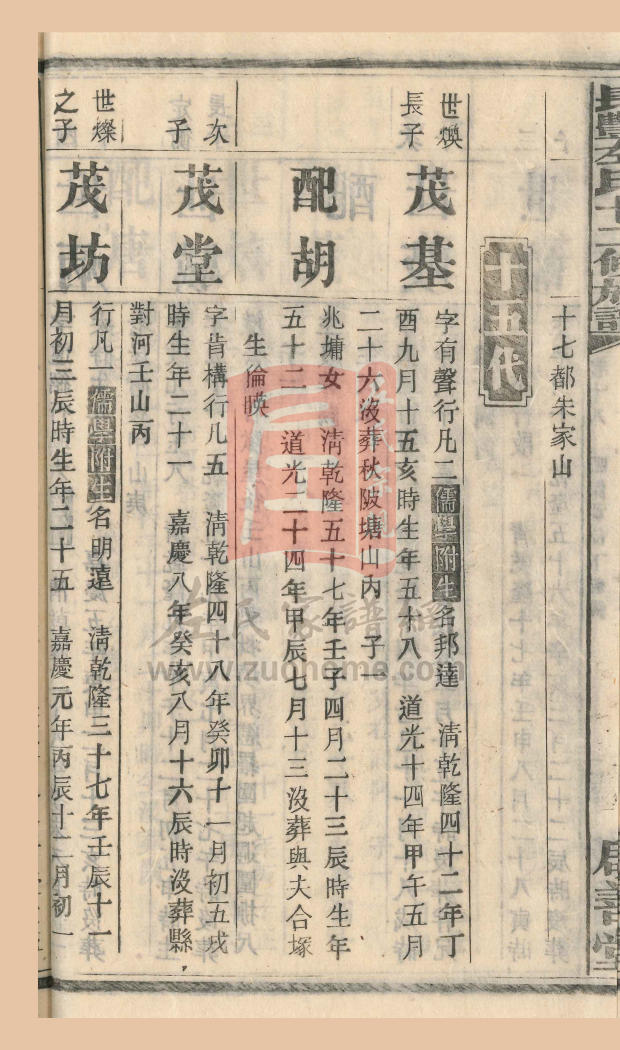 長豐左氏十二修族譜
啟善堂
十七都朱家山
十五代
世煥
長子
茂基
字有聲行凡二儒學附生名邦達 清乾隆四十二年丁
酉九月十五亥時生年五十八 道光十四年甲午五月
二十六沒葬秋陂塘山內 子一
配胡
兆墉女 清乾隆五十七年壬子四月二十三辰時生年
五十二 道光二十四年甲辰七月十三沒葬與夫合塚
生倫暎
次
子
茂堂
字肯構行凡五 清乾隆四十八年癸卯十一月初五戌
時生年二十一 嘉慶八年癸亥八月十六辰時沒葬縣
對河壬山丙
世燦
之子
茂坊
行凡一儒學附生名明遠 清乾隆三十七年壬辰十二
月初三辰時生年二十五 嘉慶元年丙辰十二月初一
左氏家譜網
www.zuohome.com